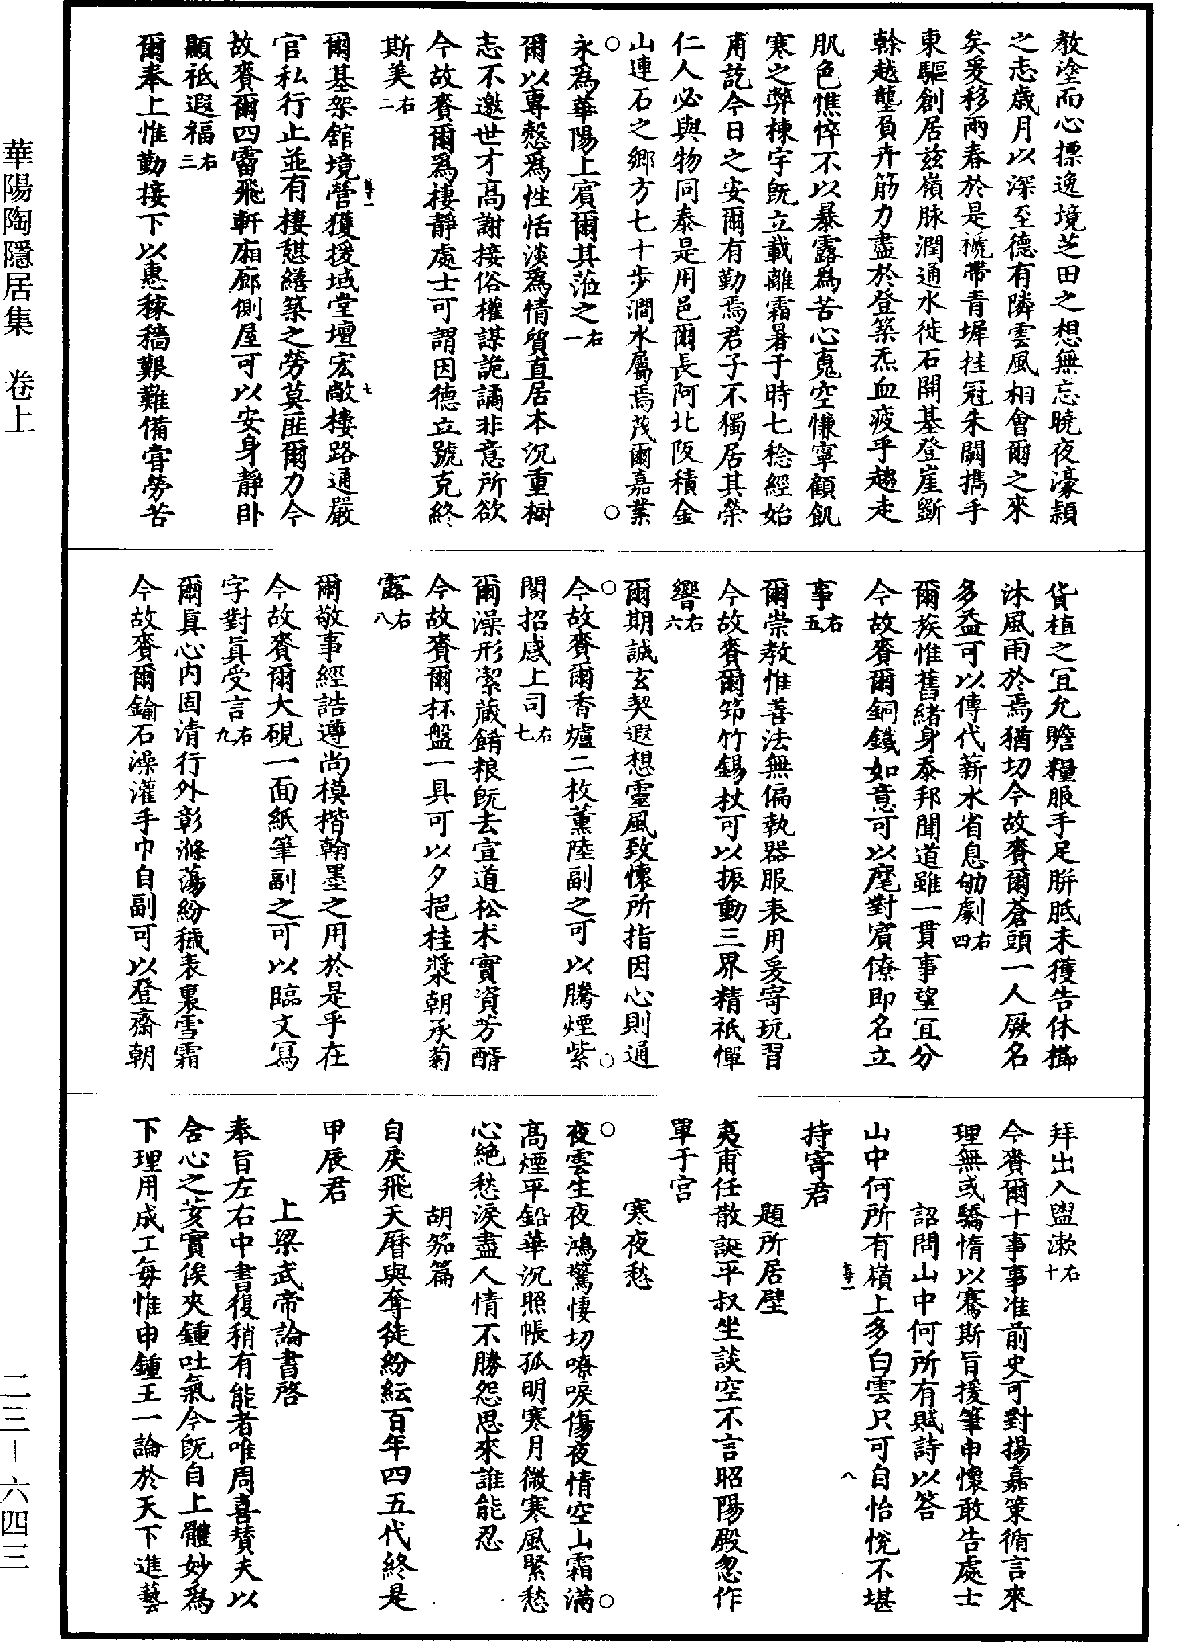 教塗而心摽逸境芝田之想無忘曉夜濠穎
之志歲月以深至德有隣雲風相會爾之來
矣爰移兩春於是褫帶青墀挂冠朱闕擕手
東驅創居兹嶺脉潤通水徙石開基登崖斵
幹越壟負卉筋力盡於登築炁血疲乎趍走
肌色憔悴不以暴露為苦心䰟空慊寧顧飢
寒之弊棟宇旣立載離霜暑于時七稔經始
甫訖今日之安爾有勤焉君子不獨居其榮
仁人必與物同泰是用邑爾長阿北阪積金
山連石之鄉方七十步澗水屬焉茂爾嘉業
○永為華陽上賓爾其涖之右一○
爾以專慤為性恬淡為情質直居本沉重樹
志不邀世才高謝接俗權謀詭譎非意所欲
今故賚爾爲棲靜處士可謂因德立號克終
斯美右二
爾基架舘境營獲援域堂壇宏敞樓路通嚴
官私行止並有棲憇繕築之勞莫匪爾力今
故賚爾四霤飛軒廂廊側屋可以安身靜卧
顯祗遐福右三
爾奉上惟勤接下以惠稼穡艱難備甞勞苦
貨植之冝允贍糧服手足胼胝未獲告休櫛
沐風雨於焉猶切今故賚爾蒼頭一人厥名
多益可以傳代薪水省息劬劇右四
爾族惟舊緒身忝邦聞道雖一貫事望冝分
今故賚爾銅鐵如意可以麾對賓僚即名立
事右五
爾崇教惟善法無偏執器服表用爰寄玩習
今故賚爾筇竹錫杖可以振動三界精祇憚
響右六
爾期誠玄契遐想靈風致懷所指因心則通
○今故賚爾香爐二枚薰陸副之可以騰煙紫○
閣招感上司右七
爾澡形潔藏餚粮旣去宣道松术實資芳醑
今故賚爾杯盤一具可以夕挹桂漿朝承菊
露右八
爾敬事經誥遵尚模楷翰墨之用於是乎在
今故賚爾大硯一面紙筆副之可以臨文寫
字對真受言右九
爾真心内固清行外彰滌蕩紛穢表裏雪霜
今故賚爾鍮石澡灌手巾自副可以登齋朝
拜出入盥漱右十
今賚爾十事事准前史可對揚嘉策循言來
理無或驕惰以騫斯旨援筆申懷敢告處士
詔問山中何所有賦詩以答
山中何所有嶺上多白雲只可自怡悅不堪
持寄君
題所居壁
夷甫任散誕平叔坐談空不言昭陽殿忽作
單于宫
寒夜愁
○夜雲生夜鴻驚悽切嘹唳傷夜情空山霜滿○
高煙平鉛華沉照帳孤明寒月微寒風緊愁
心絶愁淚盡人情不勝怨思來誰能忍
胡笳篇
自戾飛天曆與奪徒紛紜百年四五代終是
甲辰君
上梁武帝論書啓
奉旨左右中書復稍有能者唯周喜賛夫以
含心之荄實俟夾鍾吐氣今旣自上體妙爲
下理用成工每惟申鍾王一論於天下進藝
華陽陶隱居集　卷上
二三—六四三